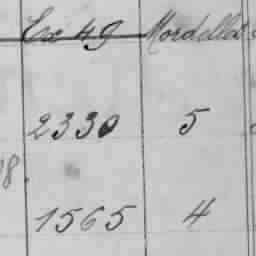 Ex 49 Mordellat
2330 5
8.
1565 4